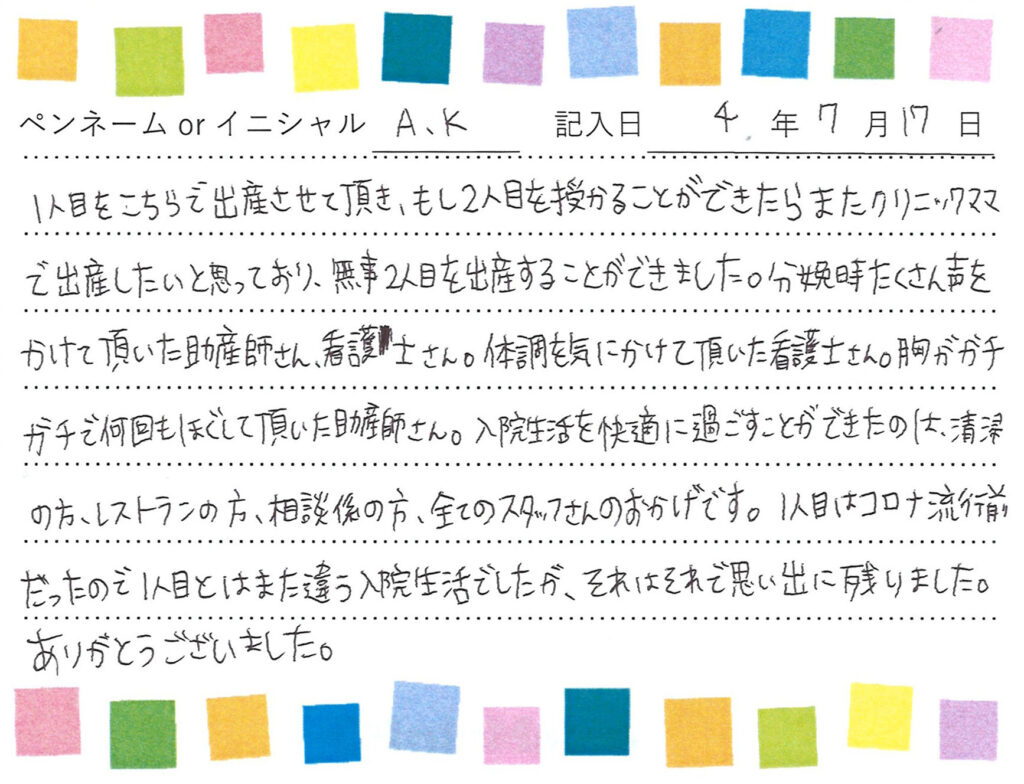 ペンネーム or イニシャル A、K 記入日 4 年 7 月 17 日
1人目をこちらで出産させて頂き、もし2人目を授かることができたらまたクリニックママ
で出産したいと思っており、無事2人目を出産することができました。分娩時たくさん声を
かけて頂いた助産師さん、看護士さん。体調を気にかけて頂いた看護士さん。胸がガチ
ガチで何回もほぐして頂いた助産師さん。入院生活を快適に過ごすことができたのは、清掃
の方、レストランの方、相談係の方、全てのスタッフさんのおかげです。1人目はコロナ流行前
だったので1人目とはまた違う入院生活でしたが、それはそれで思い出に残りました。
ありがとうございました。